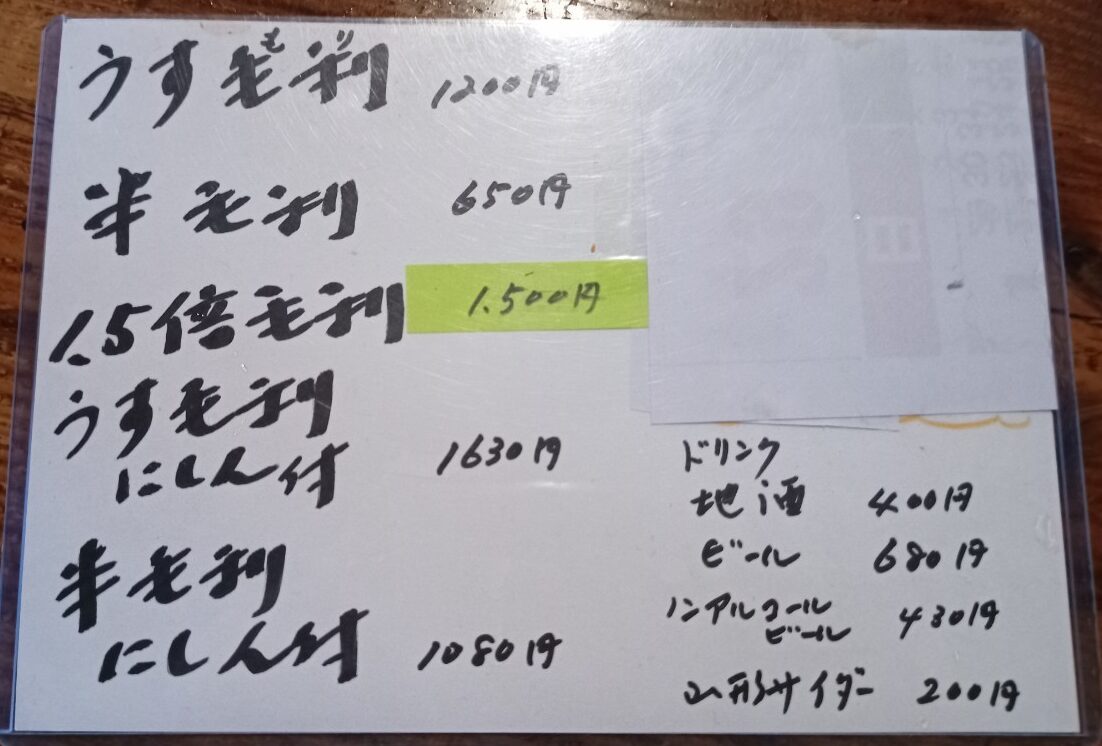 うす毛利 1200円
もり
半毛利 650円
1.5倍毛利 1.500円
うす毛利
にしん付 1630円
半毛利
にしん付 1080円
ドリンク
地酒 400円
ビール 680円
ノンアルコール
ビール 430円
山形サイダー 200円